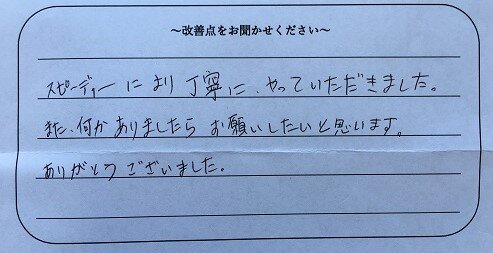 ~改善点をお聞かせください~
スピーディーにより丁寧に、やっていただきました。
また、何かありましたらお願いしたいと思います。
ありがとうございました。